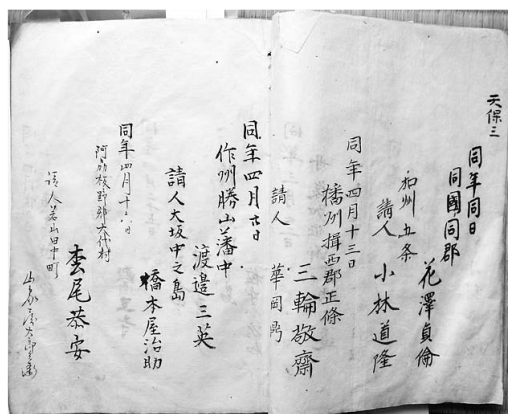 天保三
同年同日
同國同郡
花澤貞倫
和州五条
請人 小林道隆
同年四月十三日
播州揖西郡正條
三輪敬齋
請人 華岡
同年四月廿日
作州勝山藩中
渡邉三英
請人大坂中之島
橋本屋治助
同年四月十六日
村
尾恭安
請人若山田中町